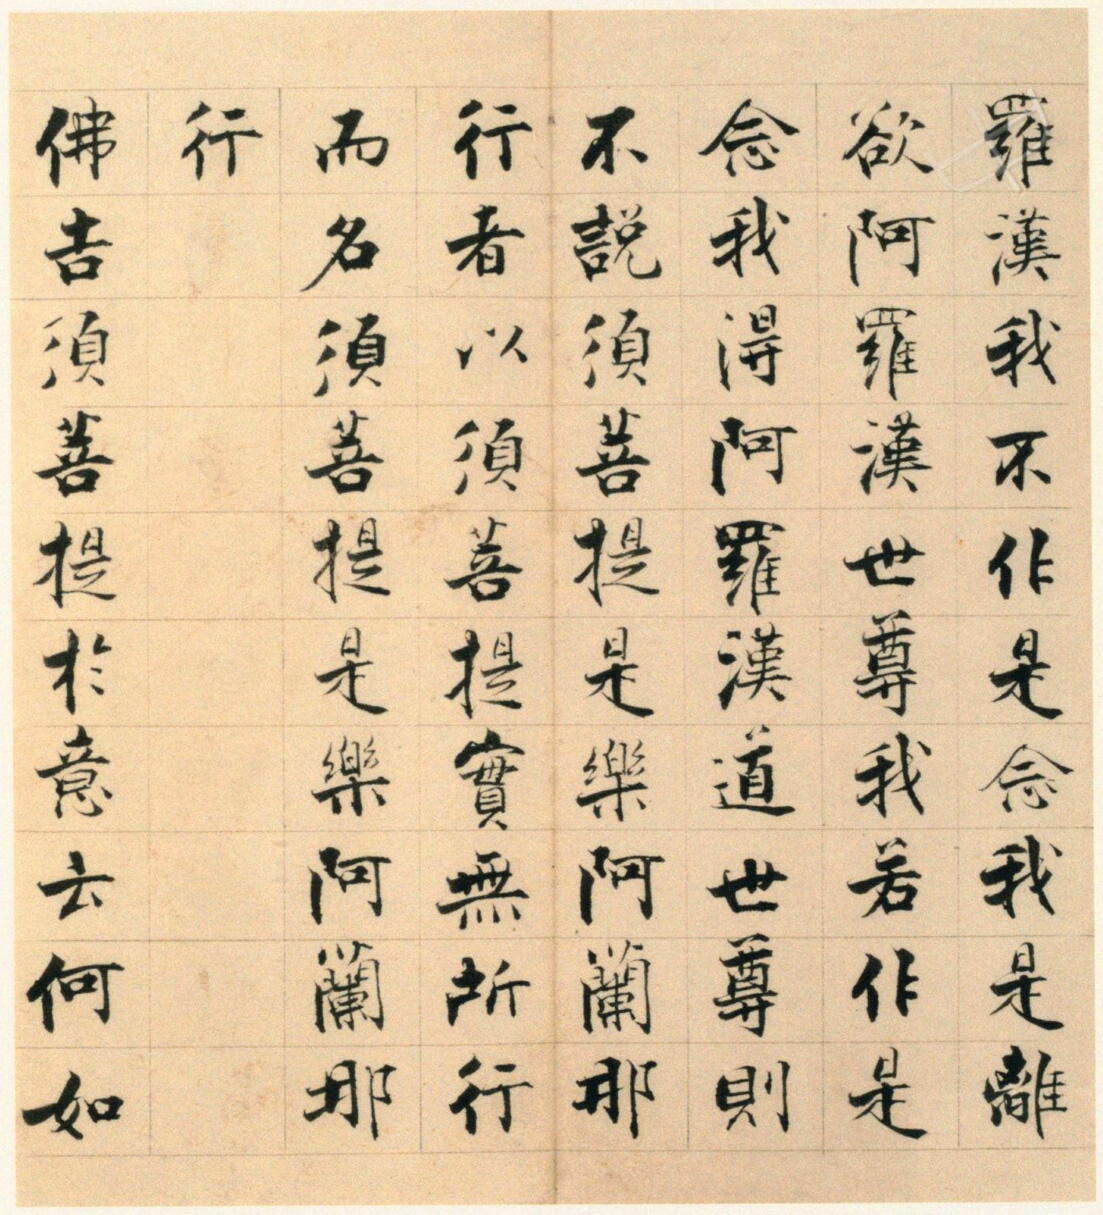 羅漢我不作是念我是離
欲阿羅漢世尊我若作是
念我淂阿羅漢道世尊則
不説須菩提是樂阿蘭那
行者以須菩提實無所行
而名須菩提是樂阿蘭那
行
佛吉須菩提於意云何如